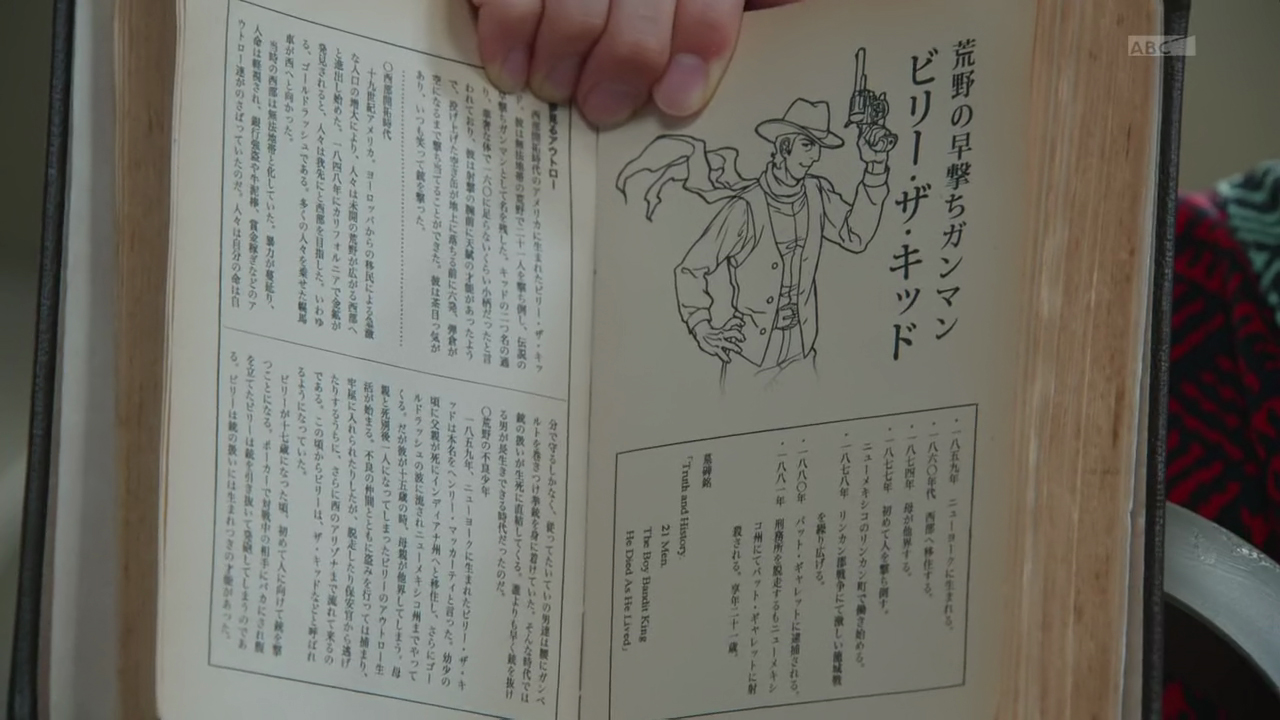 荒野の早撃ちガンマン
ビリー・ザ・キッド
・一八五九年 ニューヨークに生まれる。
・一八六〇年代 西部へ移住する。
・一八七四年 母が他界する。
・一八七七年 初めて人を撃ち倒す。
ニューメキシコのリンカン町で働き始める。
・一八七八年 リンカン郡戦争にて激しい籠城戦
を繰り広げる。
・一八八〇年 パット・ギャレットに逮捕される。
・一八八一年 刑務所を脱走するもニューメキシ
コ州にてパット・ギャレットに射
殺される。享年二十一歳。
墓碑銘
「Truth and History.
21 Men.
The Boy Bandit King
He Died As He Lived」
るアウトロー
西部開拓時代のアメリカに生まれたビリー・ザ・キッ
彼は無法地帯の荒野で二十一人を撃ち倒し、伝説の
撃ちガンマンとして名を残した。キッドの二つ名の通
り、華奢な体で一六〇に足らないくらい小柄だったと言
われており、彼は射撃の腕前に天賦の才能があったよう
で、投げ上げた空き缶が地上に落ちる前に六発、弾倉が
空になるまで撃ち当てることができた。彼は茶目っ気が
あり、いつも笑って銃を撃った。
〇西部開拓時代
十九世紀アメリカ、ヨーロッパからの移民による急激
な人口の増大により、人々は未開の荒野が広がる西部へ
と進出し始めた。一八四八年にカリフォルニアで金鉱が
発見されると、人々は我先にと西部を目指した。いわゆ
る、ゴールドラッシュである。多くの人々を乗せた幌馬
車が西へと向かった。
当時の西部は無法地帯と化していた。暴力が蔓延り、
人命は軽視され、銀行強盗や牛泥棒、賞金稼ぎなどのア
ウトロー達がのさばっていたのだ。人々は自分の命は自
分で守るしかなく、従ってたいていの男達は腰にガンベ
ルトを巻きつけ拳銃を身に着けていた。そんな時代では
銃の扱いが生死に直結してくる。誰よりも早く銃を抜け
る男が長生きできる時代だったのだ。
〇荒野の不良少年
一八五九年、ニューヨークに生まれたビリー・ザ・キ
ッドは本名を、ヘンリー・マッカーティと言った。幼少の
頃に父親が死にインディアナ州へと移住し、さらにゴー
ルドラッシュの波に流されニューメキシコ州までやって
くる。だが彼が十五歳の時、母親が他界してしまう。母
親と死別後一人になってしまったビリーのアウトロー生
活が始まる。不良の仲間とともに盗みを行っては捕まり、
牢屋に入れられたりしたが、脱走したり保安官から逃げ
たりするうちに、さらに西のアリゾナまで流れて来るの
である。この頃からビリーは、ザ・キッドなどと呼ばれ
るようになっていた。
ビリーが十七歳になった頃、初めて人に向けて銃を撃
つことになる。ポーカーで対戦中の相手にバカにされ腹
を立てたビリーは銃を引き抜いて発砲してしまうのであ
る。ビリーは銃の扱いには生まれつきの才能があった。
ABC